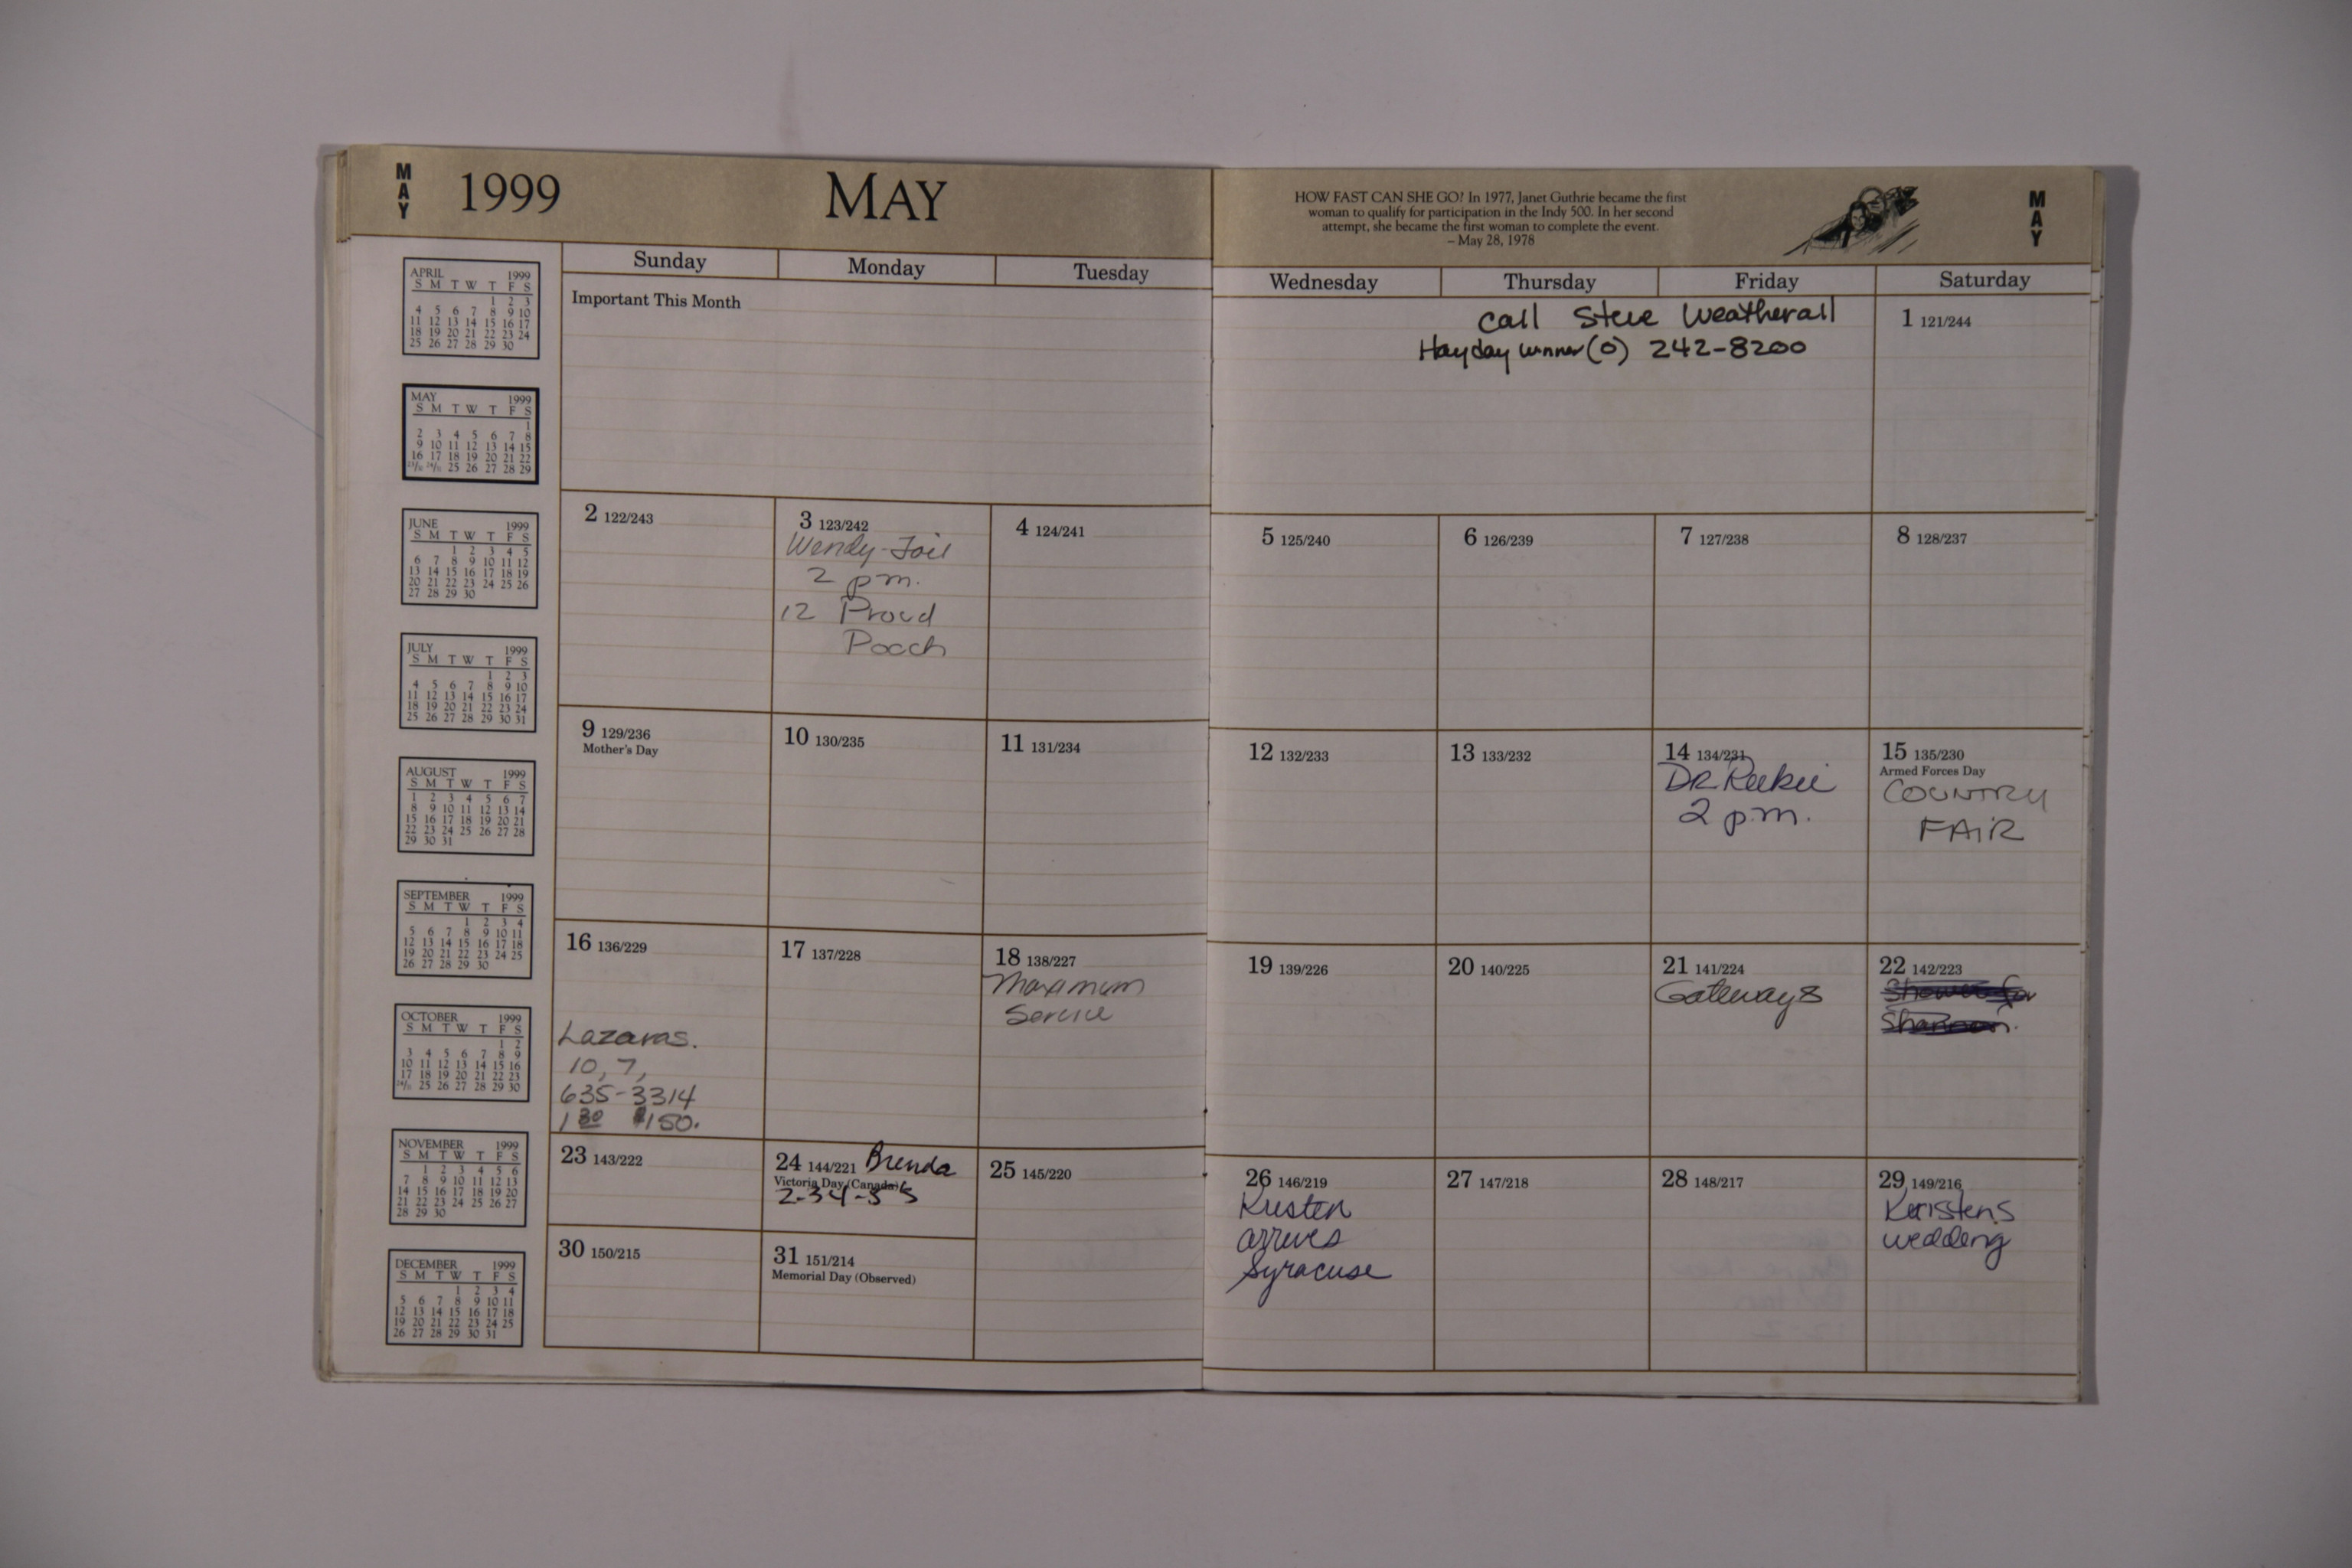 MAY
1999
MAY
HOW FAST CAN SHE GO? In 1977, Janet Guthrie became the first
woman to qualify for participation in the Indy 500. In her second
attempt, she became the first woman to complete the event.
– May 28, 1978
MAY
Sunday Monday Tuesday Wednesday Thursday Friday Saturday
Important This Month
Call Steve Weatherall
Hayday winner (O) 242-8200
1 121/244
2 122/243
3 123/242
Wendy-Foil
2 pm.
12 Proud
Pooch
4 124/241
5 125/240
6 126/239
7 127/238
8 128/237
9 129/236
Mother's Day
10 130/235
11 131/234
12 132/233
13 133/232
14 134/231
DR. Reekie
2 p.m.
15 135/230
Armed Forces Day
COUNTRY
FAIR
16 136/229
Lazaras.
10, 7,
635-3314
1 30 $150.
17 137/228
18 138/227
Maximum
Service
19 139/226
20 140/225
21 141/224
Gateway 8
22 142/223
Shower for
Shannon.
23 143/222
24 144/221 Brenda
Victoria Day (Canada)
2-34-55
25 145/220
26 146/219
Kristen
arrives
Syracuse
27 147/218
28 148/217
29 149/216
Kristens
wedding
30 150/215
31 151/214
Memorial Day (Observed)
APRIL 1999
S M T W T F S
1 2 3
4 5 6 7 8 9 10
11 12 13 14 15 16 17
18 19 20 21 22 23 24
25 26 27 28 29 30
MAY 1999
S M T W T F S
1
2 3 4 5 6 7 8
9 10 11 12 13 14 15
16 17 18 19 20 21 22
23/30 24/31 25 26 27 28 29
JUNE 1999
S M T W T F S
1 2 3 4 5
6 7 8 9 10 11 12
13 14 15 16 17 18 19
20 21 22 23 24 25 26
27 28 29 30
JULY 1999
S M T W T F S
1 2 3
4 5 6 7 8 9 10
11 12 13 14 15 16 17
18 19 20 21 22 23 24
25 26 27 28 29 30 31
AUGUST 1999
S M T W T F S
1 2 3 4 5 6 7
8 9 10 11 12 13 14
15 16 17 18 19 20 21
22 23 24 25 26 27 28
29 30 31
SEPTEMBER 1999
S M T W T F S
1 2 3 4
5 6 7 8 9 10 11
12 13 14 15 16 17 18
19 20 21 22 23 24 25
26 27 28 29 30
OCTOBER 1999
S M T W T F S
1 2
3 4 5 6 7 8 9
10 11 12 13 14 15 16
17 18 19 20 21 22 23
24/31 25 26 27 28 29 30
NOVEMBER 1999
S M T W T F S
1 2 3 4 5 6
7 8 9 10 11 12 13
14 15 16 17 18 19 20
21 22 23 24 25 26 27
28 29 30
DECEMBER 1999
S M T W T F S
1 2 3 4
5 6 7 8 9 10 11
12 13 14 15 16 17 18
19 20 21 22 23 24 25
26 27 28 29 30 31